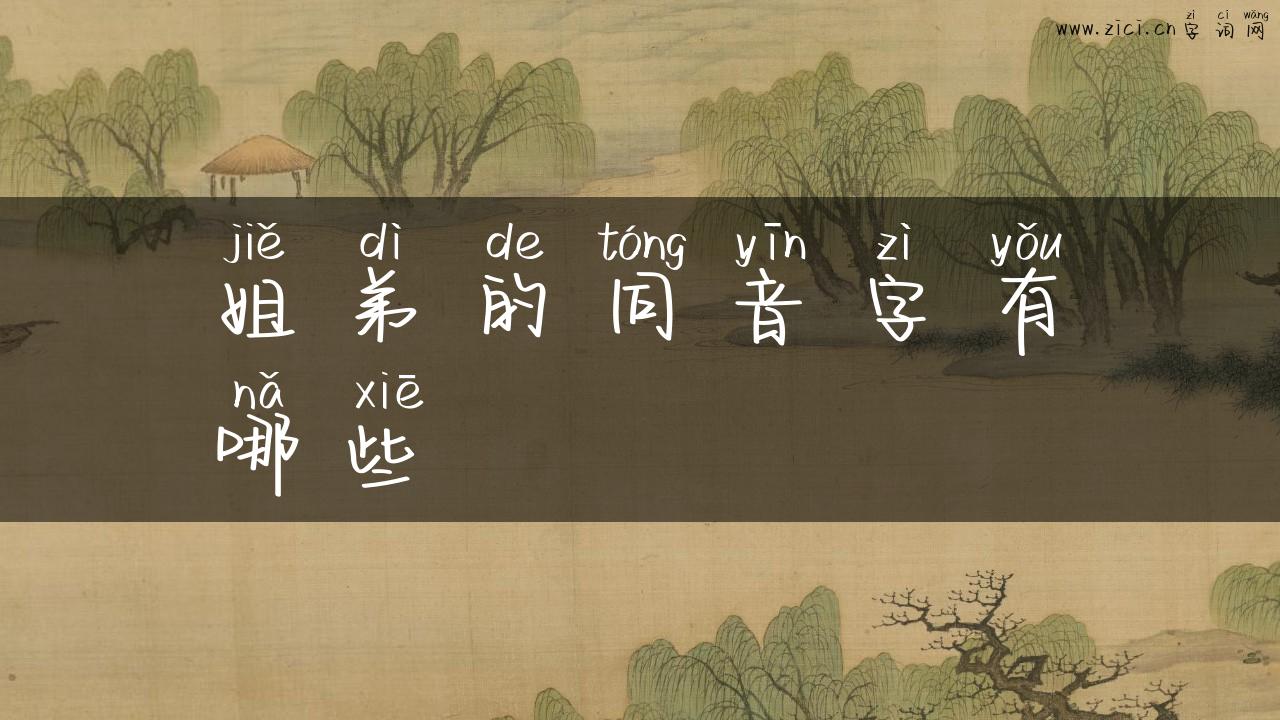 zì cí wǎng
www.zici.cn 字词网
jiě dì de tóng yīn zì yǒu
姐弟的同音字有
nǎ xiē
哪些